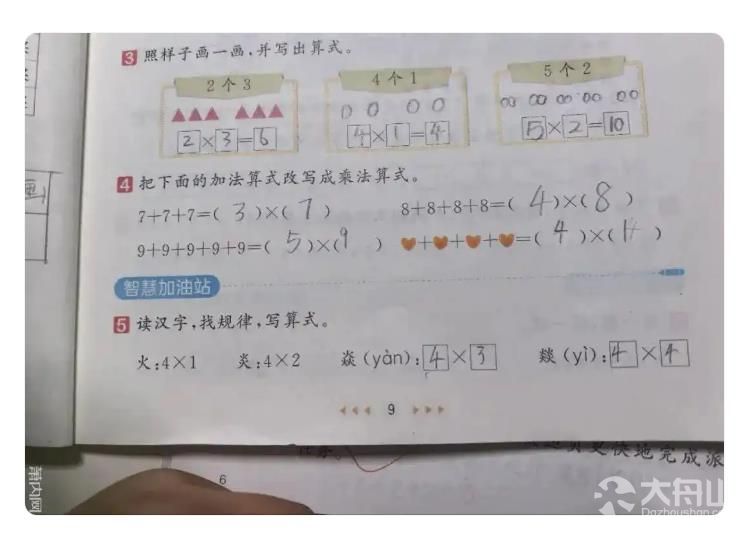 3 照样子画一画,并写出算式。
2个3 4个1 5个2
2×3=6 4×1=4 5×2=10
4 把下面的加法算式改写成乘法算式。
7+7+7=( 3 )×( 7 ) 8+8+8+8=( 4 )×( 8 )
9+9+9+9+9=( 5 )×( 9 ) ♥+♥+♥+♥=( 4 )×( )
智慧加油站
5 读汉字,找规律,写算式。
火:4×1 炎:4×2 焱(yàn):4×3 燚(yì):4×4
9
更快地完成派
6
第内网
大舟山
Dazhoushan.com